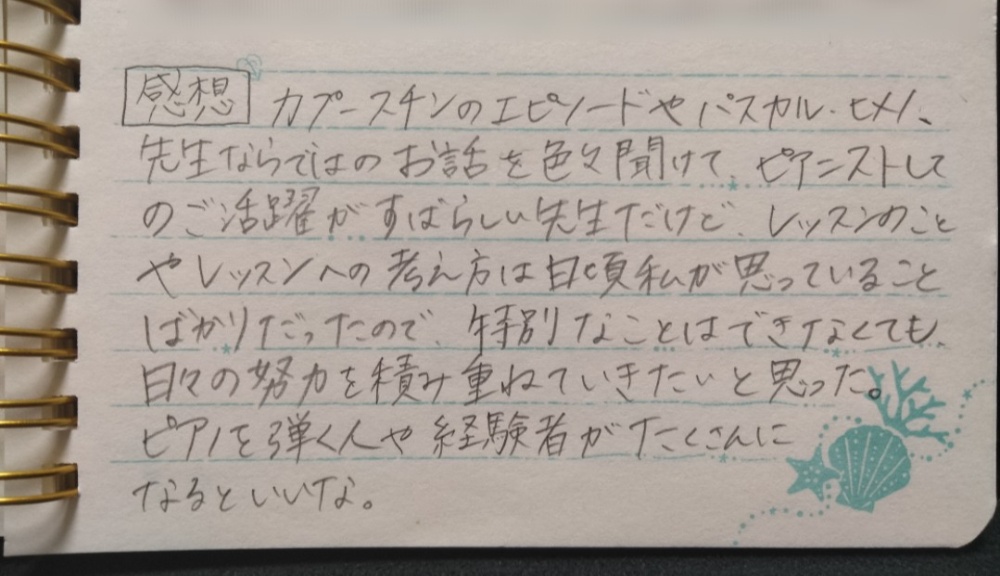 感想 カプースチンのエピソードやパスカル・ヒメノ、
先生ならではのお話を色々聞けて、ピアニストして
のご活躍がすばらしい先生だけど、レッスンのこと
やレッスンへの考え方は日頃私が思っていること
ばかりだったので、特別なことはできなくても、
日々の努力を積み重ねていきたいと思った。
ピアノを弾く人や経験者がたくさんに
なるといいな。